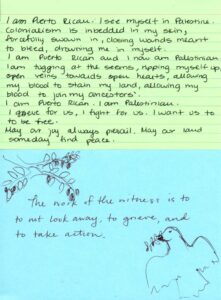 I am Puerto Rican. I see myself in Palestine.
Colonialism is inbedded in my skin,
forcefully swawn in, closing wounds meant
to bleed, drowning me in myself.
I am Puerto Rican and I now am Palestinian.
I am tugging at the seems, ripping myself up,
open veins towards open hearts, allowing
my blood to stain my land, allowing my
blood to join my ancestors'.
I am Puerto Rican. I am Palestinian.
I grieve for us, I fight for us. I want us to
to be free.
May our joy always prevail. May our land
someday find peace.
The work of the witness is to
to not look away, to grieve, and
to take action.